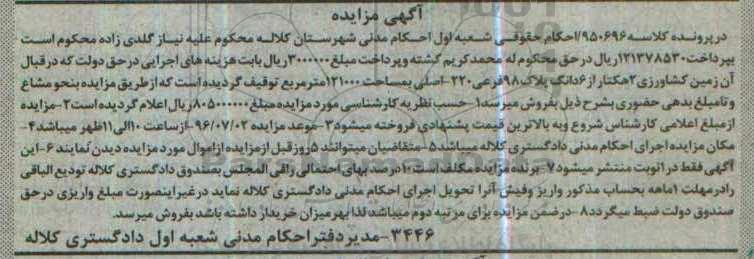 آگهی مزایده
در پرونده کلاسه ۹۵۰۶۹۶/احکام حقوقی شعبه اول احکام مدنی شهرستان کلاله محکوم علیه نیاز گلدی زاده محکوم است
بپرداخت ۱۲۱۳۷۸۵۳۰ ریال در حق محکوم له محمد کریم کشته و پرداخت مبلغ ۳۰۰۰۰۰۰ ریال بابت هزینه های اجرایی در حق دولت که در قبال
آن زمین کشاورزی ۲هکتار از ۶دانگ پلاک ۹۸فرعی ۲۲۰-اصلی بمساحت ۱۲۱۰۰۰مترمربع توقیف گردیده است که از طریق مزایده بنحو مشاع
و تا مبلغ بدهی حضوری بشرح ذیل بفروش میرسد ۱-حسب نظریه کارشناسی مورد مزایده مبلغ ۸۰۵۰۰۰۰۰۰ ریال اعلام گردیده است ۲-مزایده
از مبلغ اعلامی کارشناس شروع و به بالاترین قیمت پشنهادی فروخته میشود ۳-موعد مزایده ۹۶/۰۷/۰۲-از ساعت ۱۰الی ۱۱ظهر میباشد ۴-
مکان مزایده اجرای احکام مدنی دادگستری کلاله میباشد ۵-متقاضیان میتوانند ۵روز قبل از مزایده از اموال مورد مزایده دیدن نمایند ۶-این
آگهی فقط در ۱نوبت منتشر میشود ۷-برنده مزایده مکلف است ۱۰درصد بهای احتمالی را فی المجلس بصندوق دادگستری کلاله تودیع الباقی
را در مهلت ۱ماهه بحساب مذکور واریز وفیش آنرا تحویل اجرای احکام مدنی دادگستری کلاله نماید در غیر اینصورت مبلغ واریزی در حق
صندوق دولت ضبط میگردد ۸-در ضمن مزایده برای مرتبه دوم میباشد لذا بهر میزان خریدار داشته باشد بفروش میرسد.
۳۴۴۶-مدیر دفتر احکام مدنی شعبه اول دادگستری کلاله